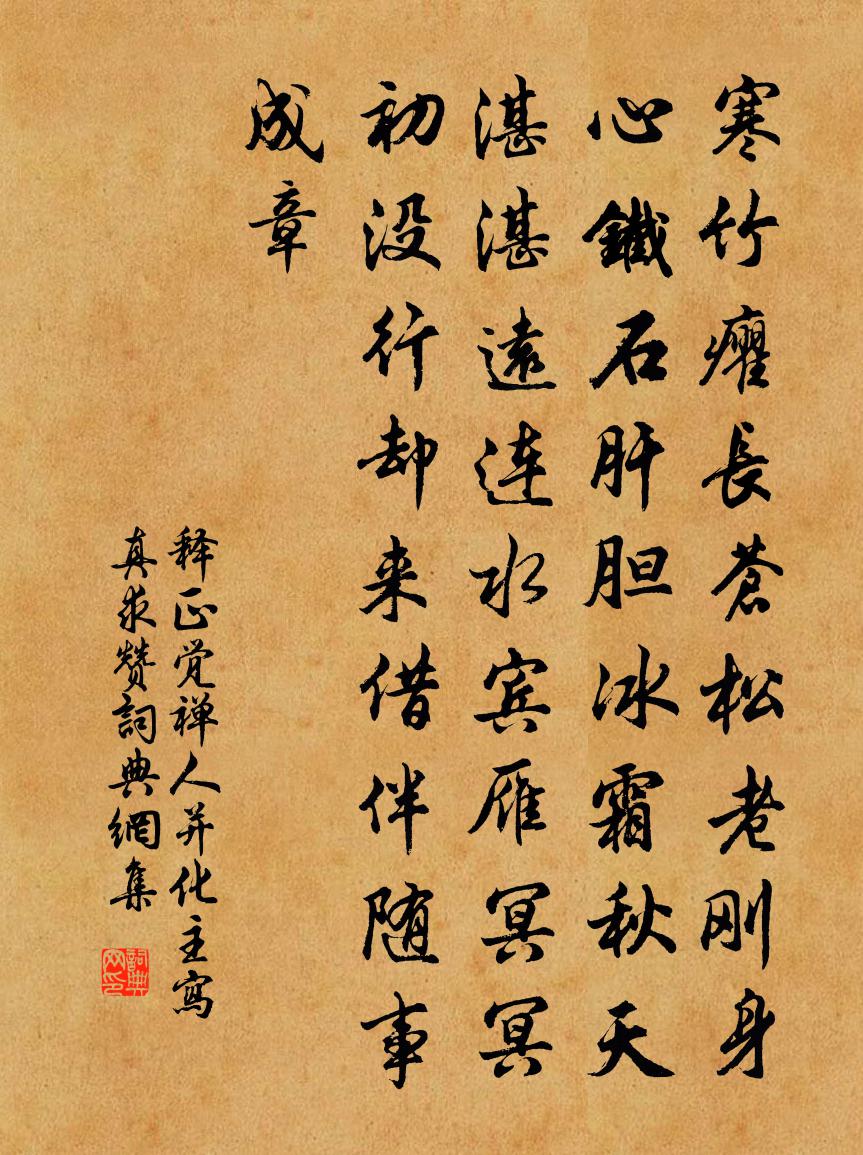 寒竹癯長蒼松老刚身
心鐵石肝胆冰霜秋天
湛湛遠连水宾雁冥冥
初没行却来借伴随事
成章
释正觉禅人并化主寫
真求赞詞典網集
詞典
网印